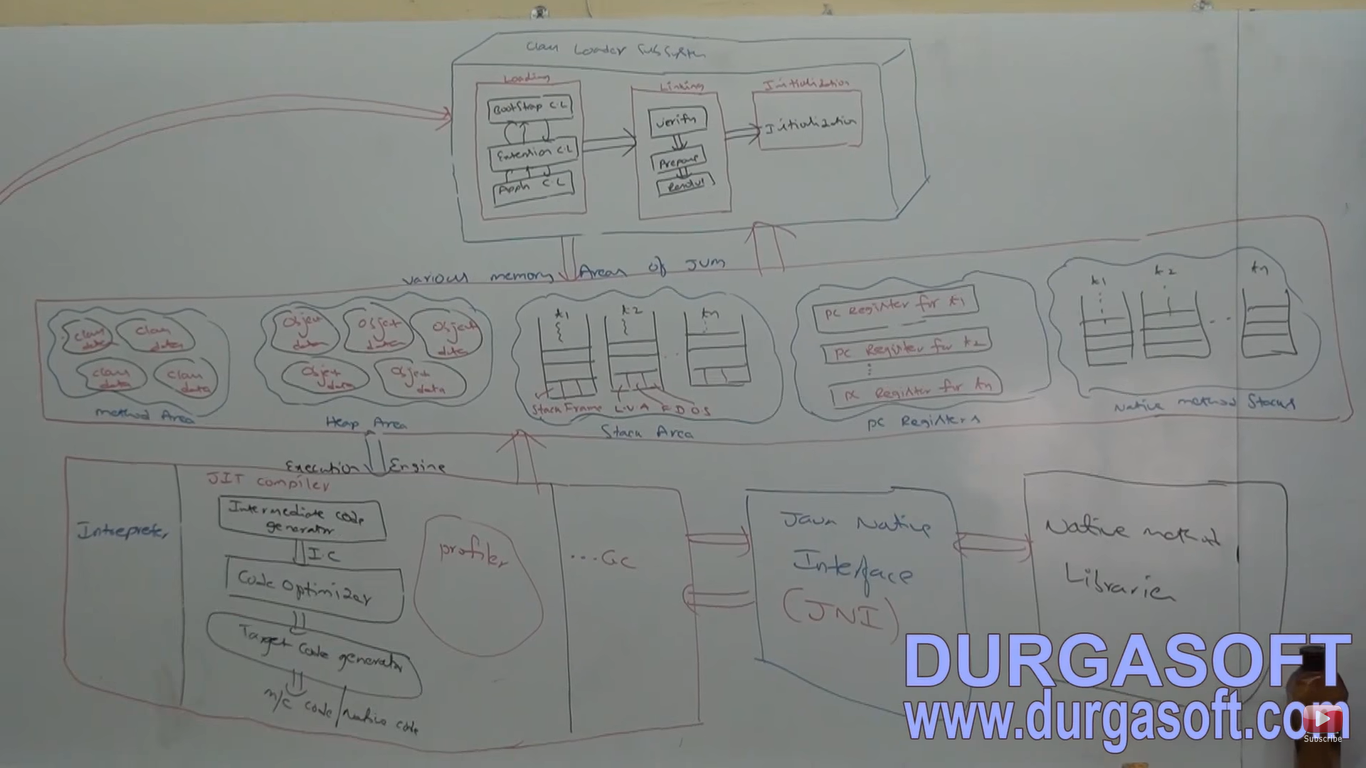 Class Loader Subsystem
Loading
BootStrap C L
Extention C L
Appln C L
Linking
Verify
Prepare
Resolve
Initialization
Initialization
Various memory Areas of JVM
Class data
Class data
Class data
Class data
method Area
Object data
Object data
Object data
Object data
Object data
Heap Area
t1
t2
tn
Stack Frame
L V A
F D
O S
Stack Area
PC Register for t1
PC Register for t2
PC Register for tn
PC Registers
t1
t2
tn
Native method Stacks
Execution Engine
Intrepreter
JIT compiler
Intermediate code
generator
I C
Code Optimizer
Target code generator
m/c code/native code
profiler
...GC
Java Native
Interface
(JNI)
Native method
Libraries
DURGASOFT
www.durgasoft.com
Subscribe